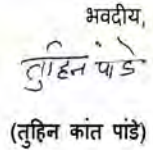 भवदीय,
तुहिन पांडे
(तुहिन कांत पांडे)